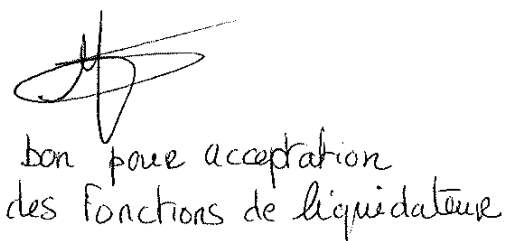 bon pour acceptation
des Fonctions de liquidateur